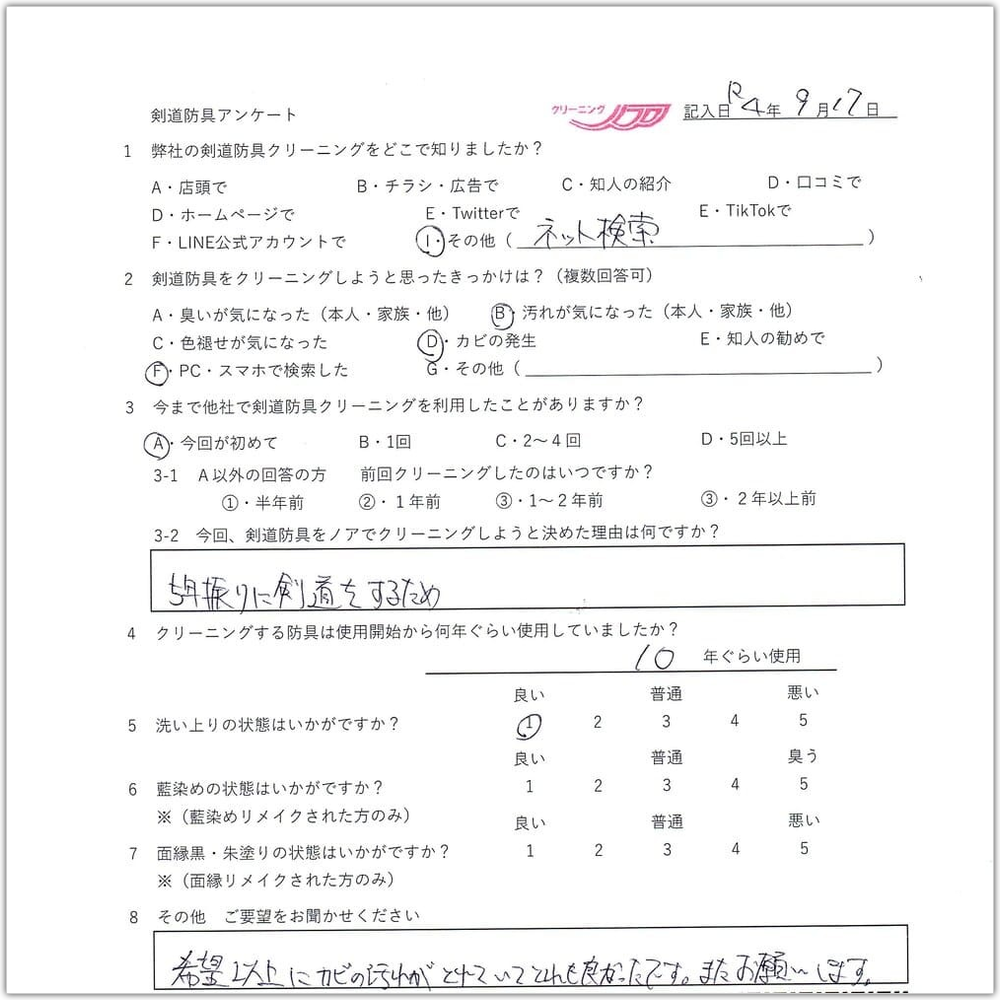 剣道防具アンケート
クリーニング ノア 記入日 R4年 9月17日
1 弊社の剣道防具クリーニングをどこで知りましたか？
A・店頭で B・チラシ・広告で C・知人の紹介 D・口コミで
D・ホームページで E・Twitterで E・TikTokで
F・LINE公式アカウントで I・その他（ ネット検索 ）
2 剣道防具をクリーニングしようと思ったきっかけは？（複数回答可）
A・臭いが気になった（本人・家族・他） B・汚れが気になった（本人・家族・他）
C・色褪せが気になった D・カビの発生 E・知人の勧めで
F・PC・スマホで検索した G・その他（ ）
3 今まで他社で剣道防具クリーニングを利用したことがありますか？
A・今回が初めて B・1回 C・2～4回 D・5回以上
3-1 A以外の回答の方 前回クリーニングしたのはいつですか？
①・半年前 ②・1年前 ③・1～2年前 ③・2年以上前
3-2 今回、剣道防具をノアでクリーニングしようと決めた理由は何ですか？
5年振りに剣道をするため
4 クリーニングする防具は使用開始から何年ぐらい使用していましたか？
10 年ぐらい使用
良い 普通 悪い
5 洗い上りの状態はいかがですか？ 1 2 3 4 5
良い 普通 臭う
6 藍染めの状態はいかがですか？ 1 2 3 4 5
※（藍染めリメイクされた方のみ）
良い 普通 悪い
7 面縁黒・朱塗りの状態はいかがですか？ 1 2 3 4 5
※（面縁リメイクされた方のみ）
8 その他 ご要望をお聞かせください
希望以上にカビの汚れがとれていてとても良かったです。またお願いします。